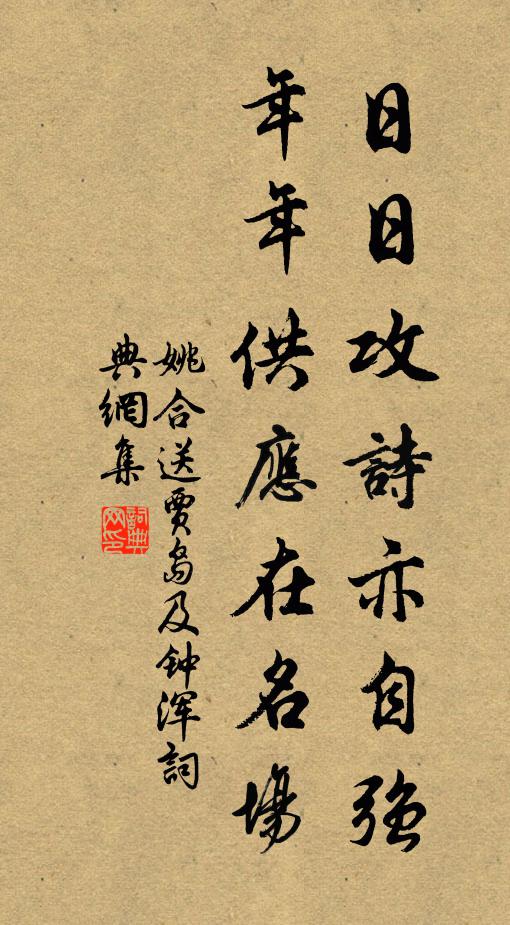 日日攻詩亦自強
年年供應在名場
姚合送賈島及钟渾詞
典網集
詞典網印